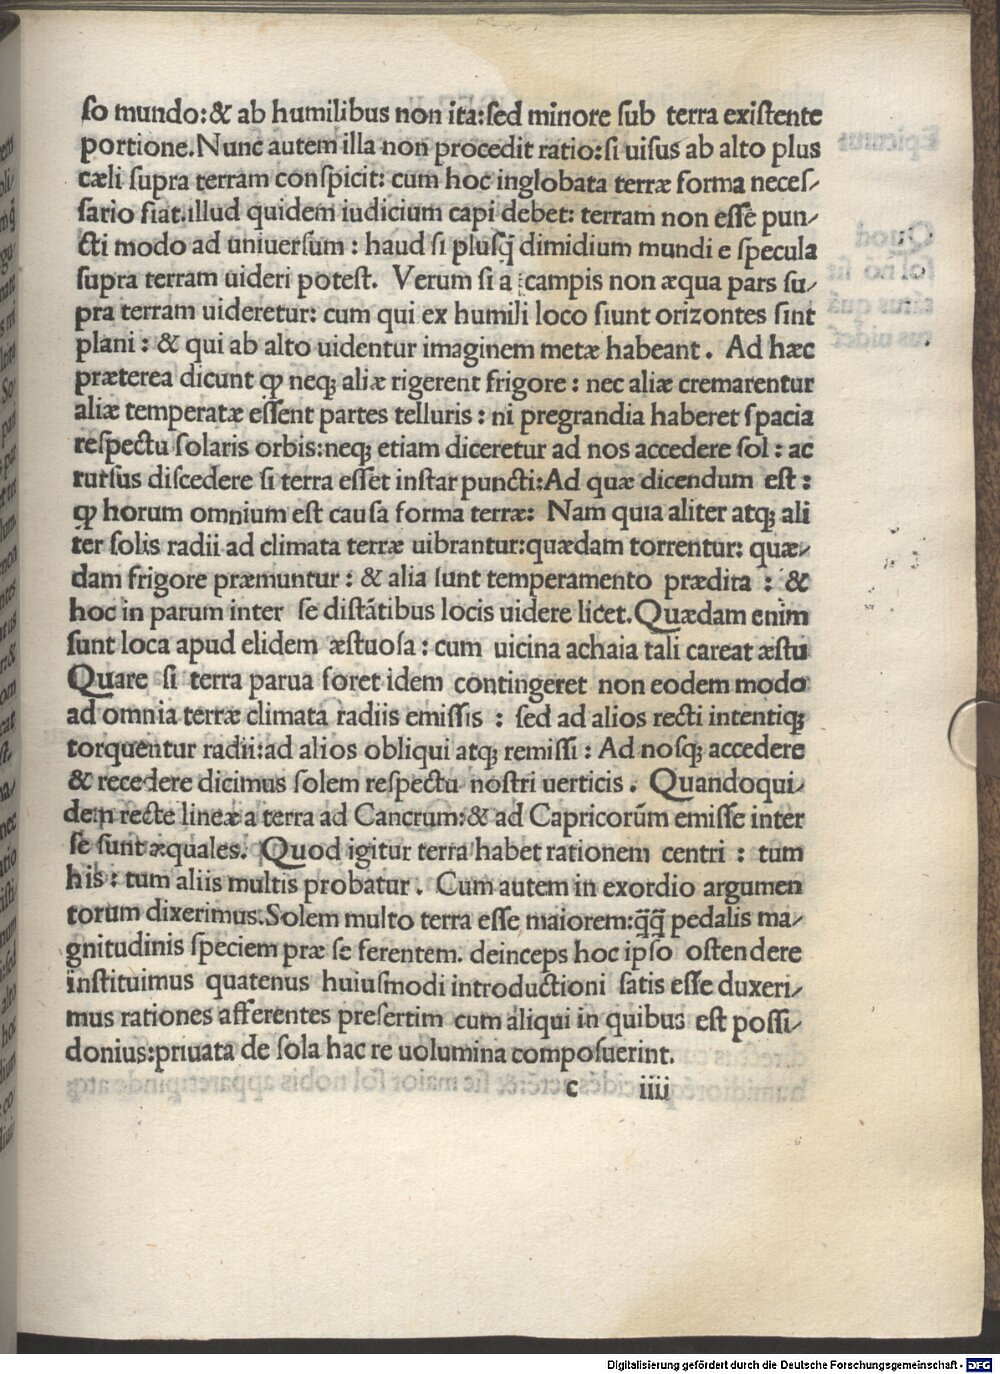 ſo mundo:& ab humilibus non ita:ſed minore ſub terra exiſtente
portione.Nunc autem illa non procedit ratio:ſi uiſus ab alto plus
cæli ſupra terram conſpicit: cum hoc inglobata terræ forma neceſ⸗
ſario fiat.illud quidem iudicium capi debet: terram non eſſe pun⸗
cti modo ad uniuerſum : haud ſi pluſq̃ dimidium mundi e ſpecula
ſupra terram uideri poteſt. Verum ſi a campis non æqua pars ſu⸗
pra terram uideretur: cum qui ex humili loco fiunt orizontes ſint
plani : & qui ab alto uidentur imaginem metæ habeant . Ad hæc
præterea dicunt ꝙ neqꝫ aliæ rigerent frigore : nec aliæ cremarentur
aliæ temperatæ eſſent partes telluris : ni pregrandia haberet ſpacia
reſpectu ſolaris orbis:neqꝫ etiam diceretur ad nos accedere ſol : ac
rurſus diſcedere ſi terra eſſet inſtar puncti:Ad quæ dicendum eſt :
ꝙ horum omnium eſt cauſa forma terræ: Nam quia aliter atqꝫ ali
ter ſolis radii ad climata terræ uibrantur:quædam torrentur: quæ⸗
dam frigore præmuntur : & alia ſunt temperamento prædita : &
hoc in parum inter ſe diſtãtibus locis uidere licet.Quædam enim
ſunt loca apud elidem æſtuoſa : cum uicina achaia tali careat æſtu
Quare ſi terra parua foret idem contingeret non eodem modo
ad omnia terræ climata radiis emiſſis : ſed ad alios recti intentiqꝫ
torquentur radii:ad alios obliqui atqꝫ remiſſi : Ad noſqꝫ accedere
& recedere dicimus ſolem reſpectu noſtri uerticis . Quandoqui⸗
dem recte lineæ a terra ad Cancrum:& ad Capricorũm emiſſe inter
ſe ſunt æquales. Quod igitur terra habet rationem centri : tum
his : tum aliis multis probatur . Cum autem in exordio argumen
torum dixerimus.Solem multo terra eſſe maiorem:q̃q̃ pedalis ma⸗
gnitudinis ſpeciem præ ſe ferentem. deinceps hoc ipſo oſtendere
inſtituimus quatenus huiuſmodi introductioni ſatis eſſe duxeri⸗
mus rationes afferentes preſertim cum aliqui in quibus eſt poſſi⸗
donius:priuata de ſola hac re uolumina compoſuerint.
c iiii
Digitalisierung gefördert durch die Deutsche Forschungsgemeinschaft - DFG